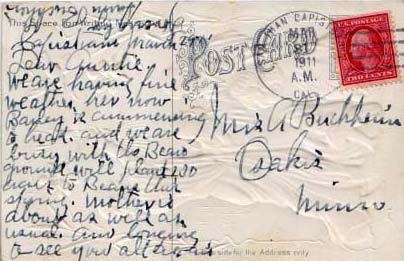 This Space for Writing Messages
Capistrano March 20
Dear Auntie
we are having fine
weather her now
Barley is commencing
to head. and we are
busy with the Bean
ground will plant 250
to Beans this
spring. Mother is
about as well as
usual. and longing
to see you all
POST CARD
SAN JUAN CAPIS
MAR
21
1911
A.M.
CAL.
U.S. POSTAGE
TWO CENTS
Mrs A Buchheim
Osakis
Minn.
side for the Address only